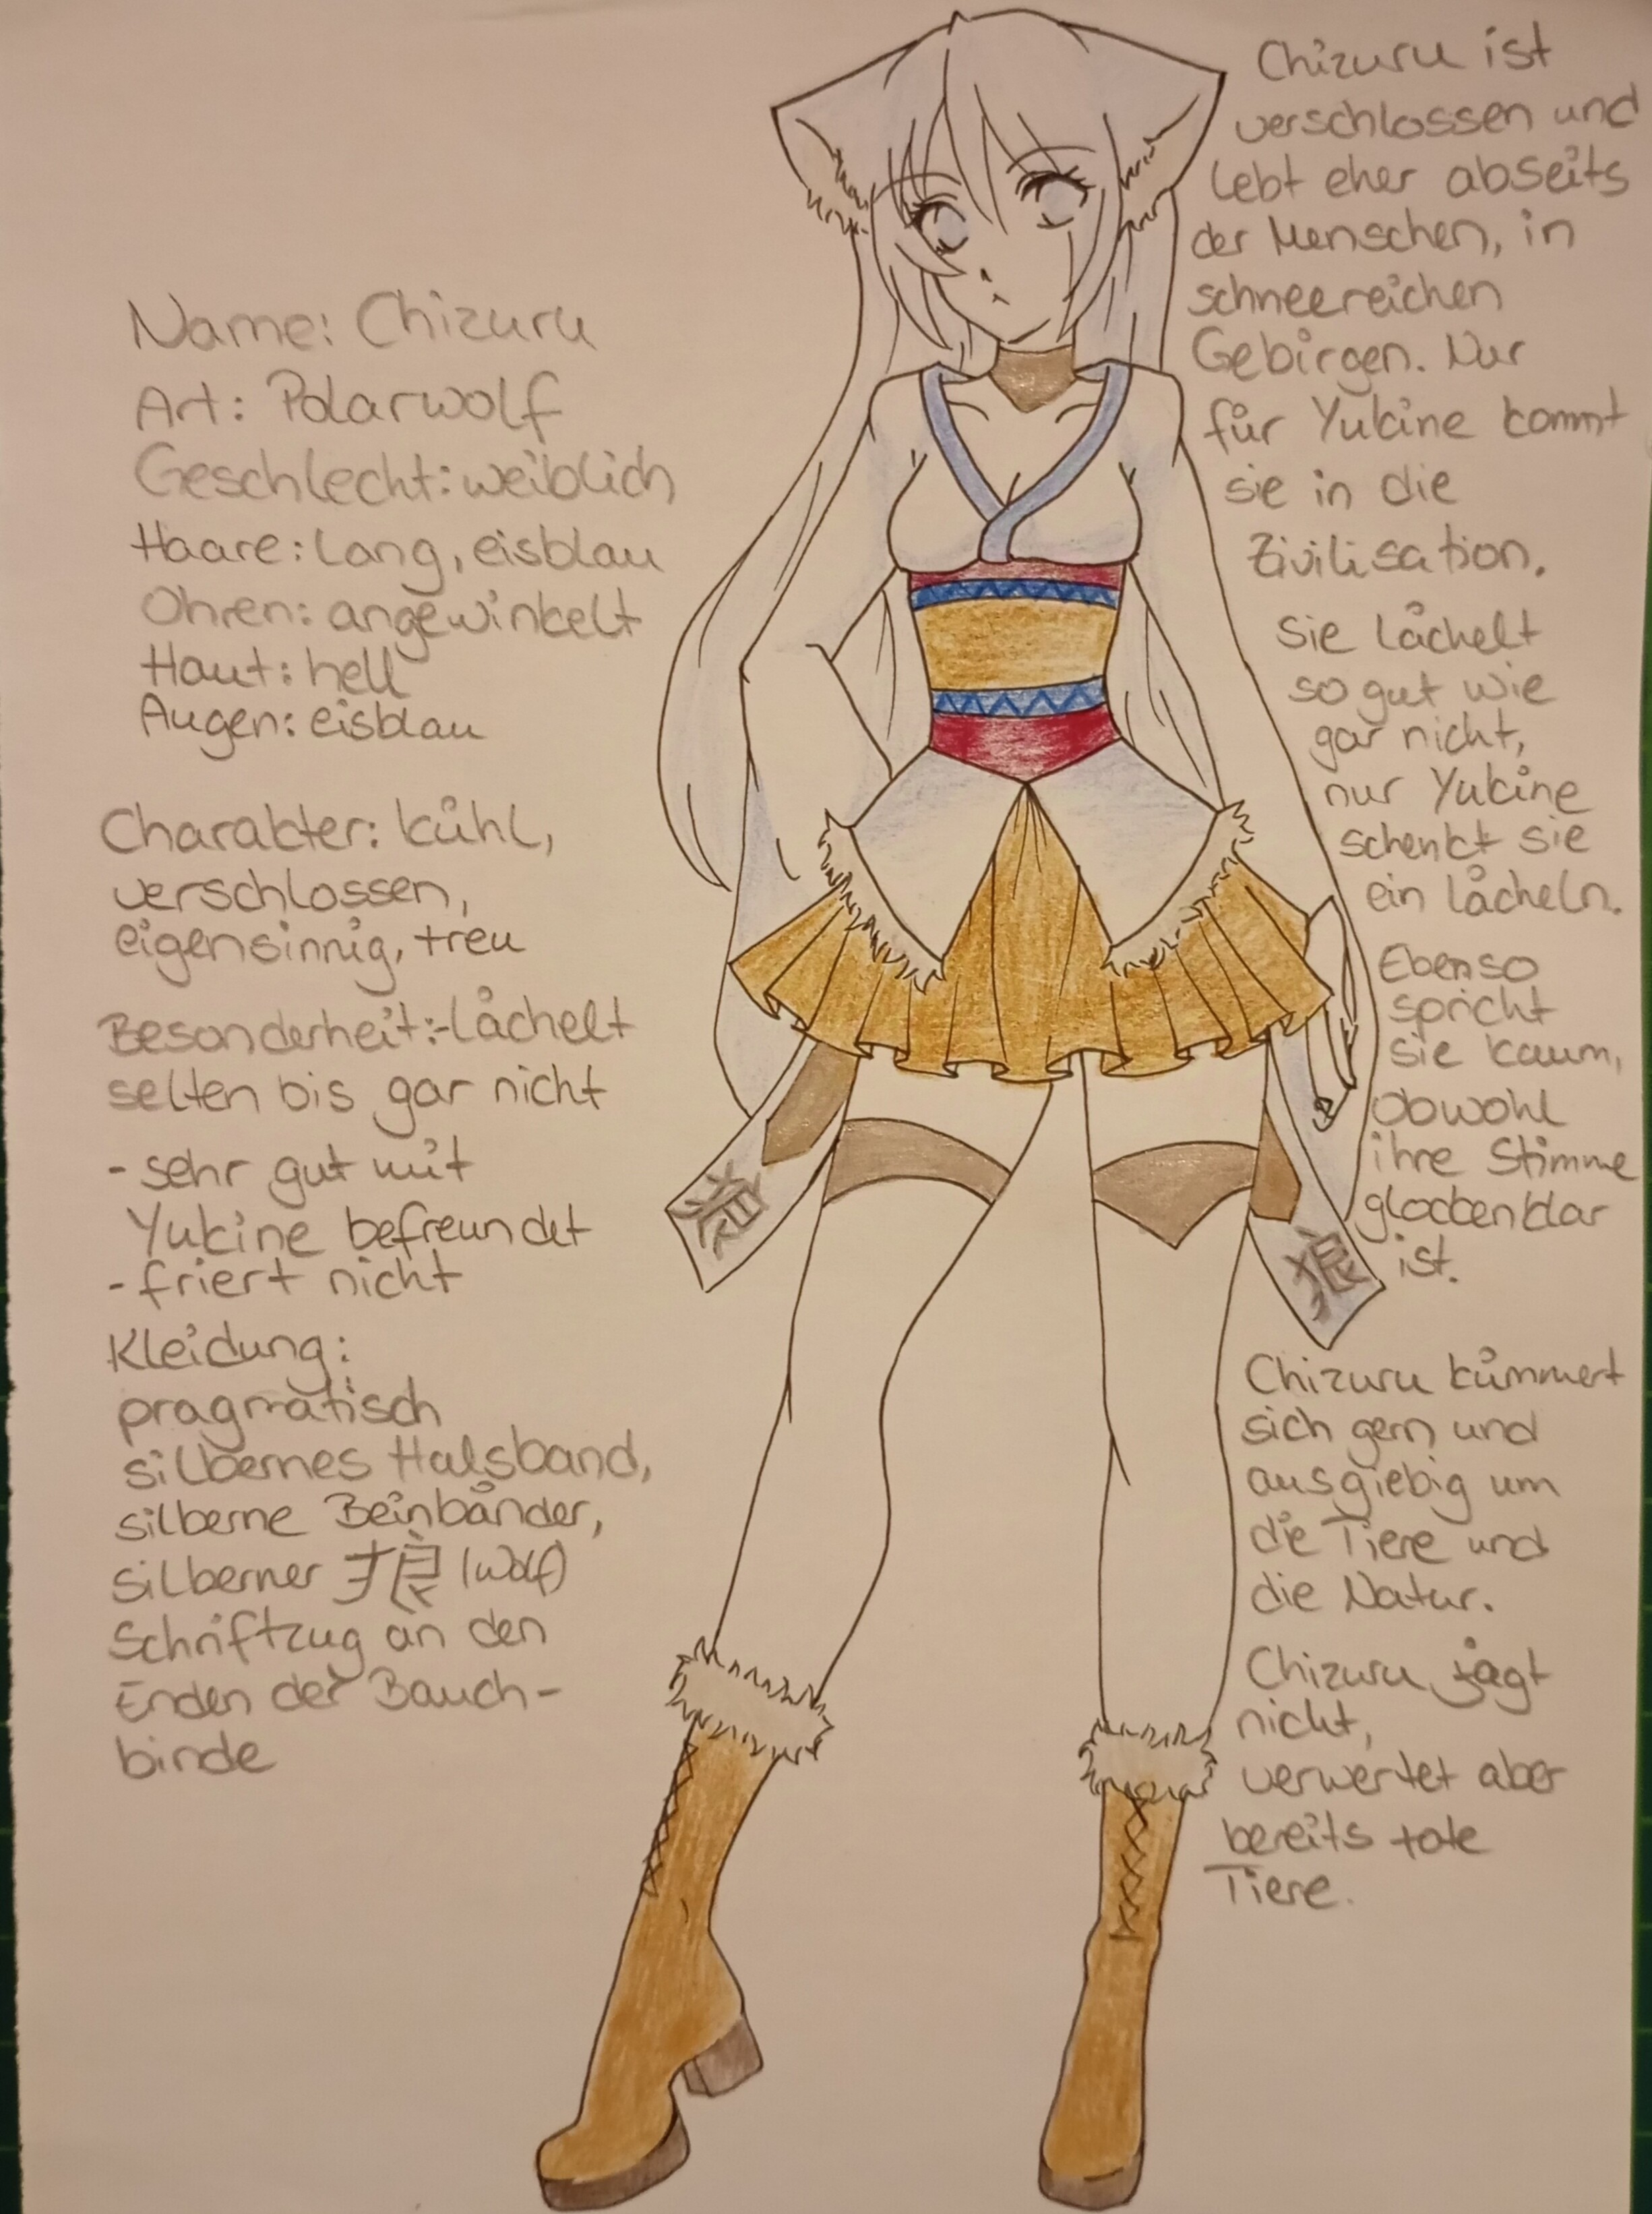 Name: Chizuru
Art: Polarwolf
Geschlecht: weiblich
Haare: lang, eisblau
Ohren: angewinkelt
Haut: hell
Augen: eisblau
Charakter: kühl,
verschlossen,
eigensinnig, treu
Besonderheit:-lächelt
selten bis gar nicht
- sehr gut mit
Yukine befreundet
- friert nicht
Kleidung:
pragmatisch
silbernes Halsband,
silberne Beinbänder,
silberner 狼 (Wolf)
Schriftzug an den
Enden der Bauch-
binde
狼
狼
Chizuru ist
verschlossen und
lebt eher abseits
der Menschen, in
schneereichen
Gebirgen. Nur
für Yukine kommt
sie in die
Zivilisation.
Sie lächelt
so gut wie
gar nicht,
nur Yukine
schenkt sie
ein lächeln.
Ebenso
spricht
sie kaum,
obwohl
ihre Stimme
glockenklar
ist.
Chizuru kümmert
sich gern und
ausgiebig um
die Tiere und
die Natur.
Chizuru jagt
nicht,
verwertet aber
bereits tote
Tiere.